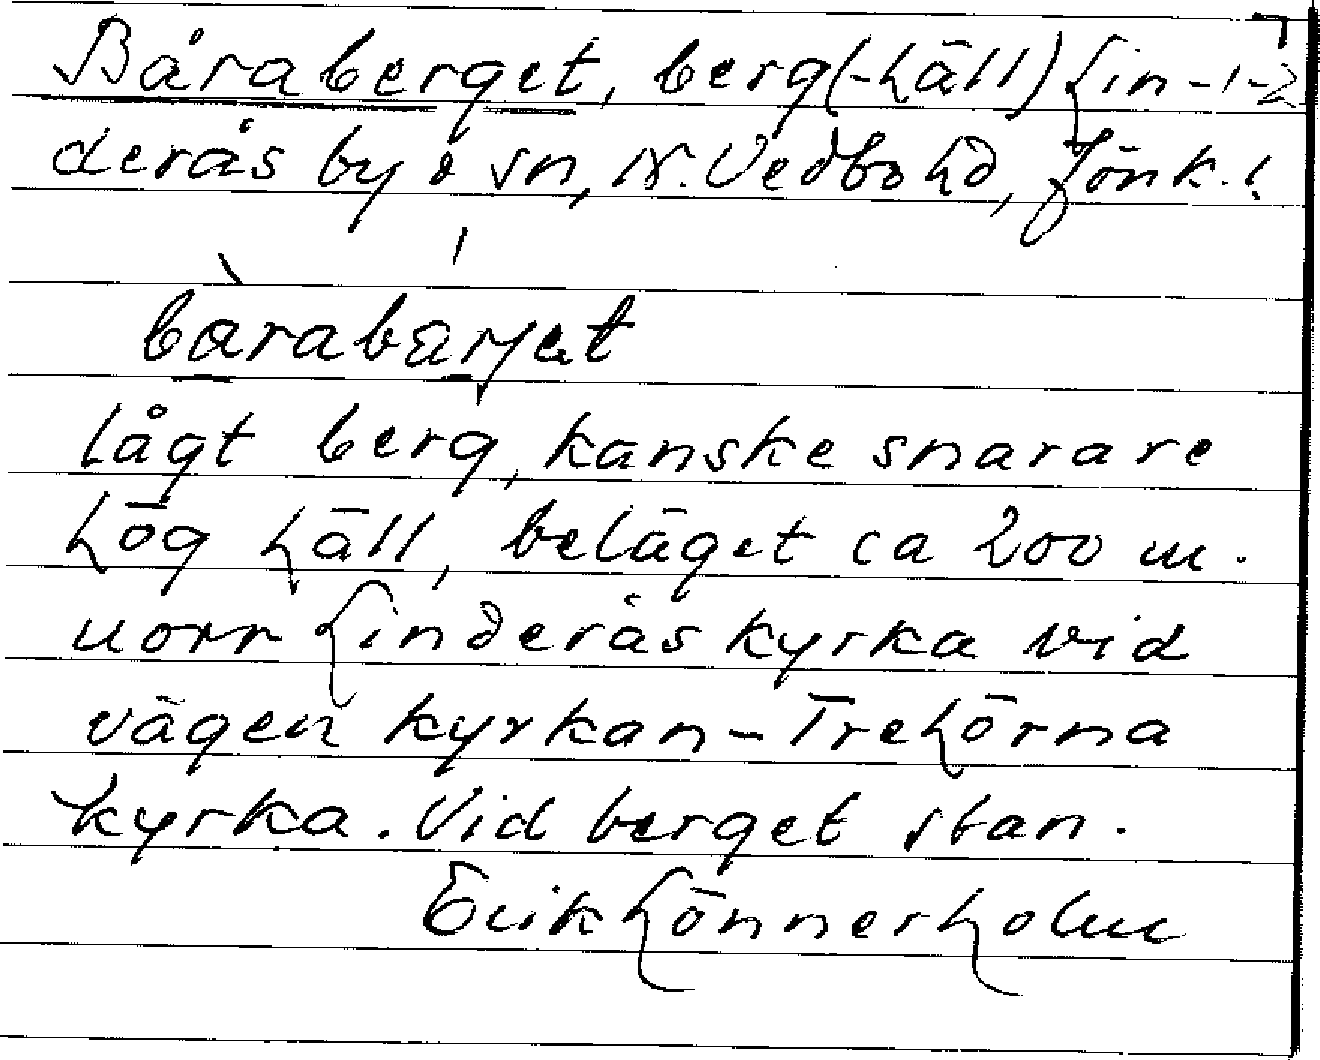 Båraberget, berg(-häll) Lin-
derås by o sn, N. Vedbo hd, Jönk.l
bårabärjet
lågt berg, kanske snarare
hög häll, beläget ca 200 m.
norr Linderås kyrka vid
vägen kyrkan-Trehörna
kyrka. Vid berget stan.
Erik Lönnerholm